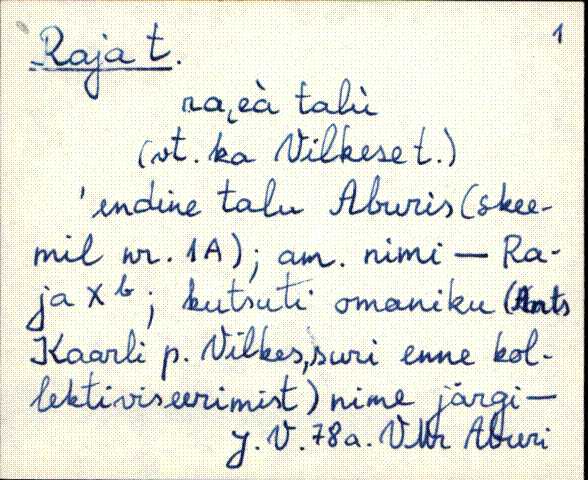 1
Raja t.
ra,eà talù
(vt. ka Vilkese t.)
'endine talu Aburis (skee-
mil nr. 1A); am. nimi — Ra-
ja X b; kutsuti omaniku (Ants
Kaarli p. Vilkes, suri enne kol-
lektiviseerimist) nime järgi —
J. V. 78a. VMr Aburi